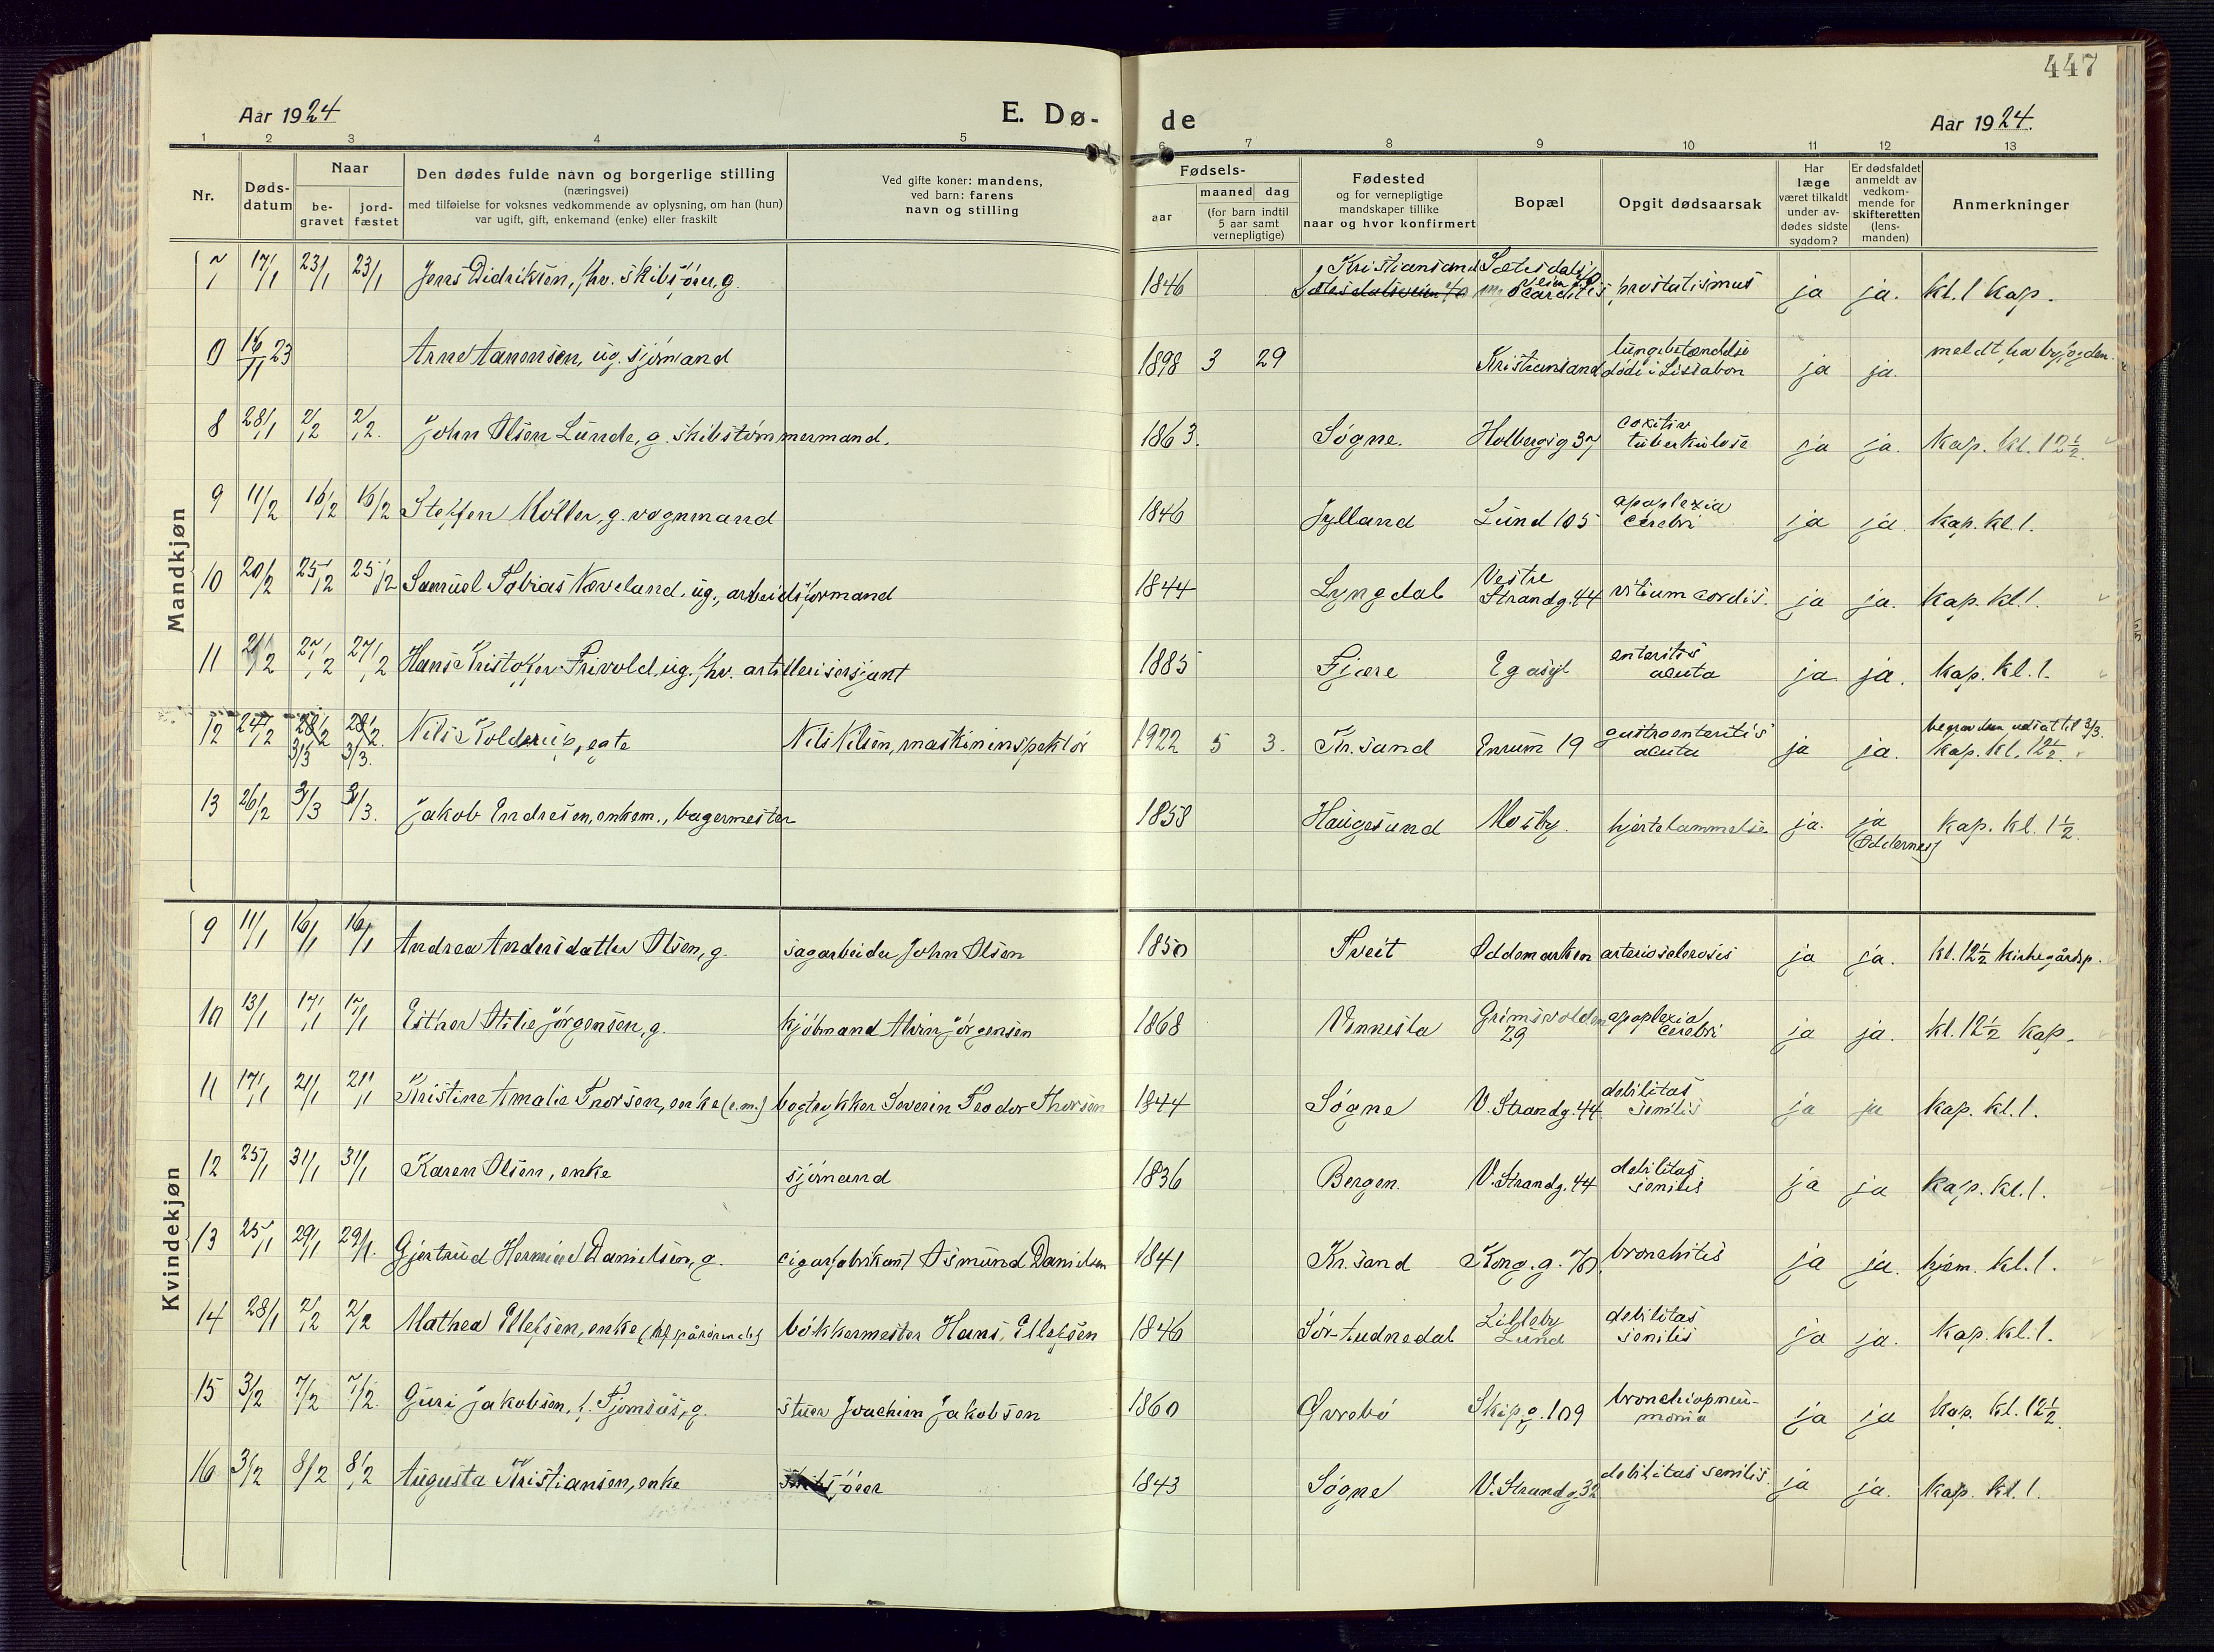 447
Aar 1924
E. Dø-
de
Aar 1924.
1 2 3 4 5 6 7 8 9 10 11 12 13
Nr.
Døds-
datum
Naar
be-
gravet
jord-
fæstet
Den dødes fulde navn og borgerlige stilling
(næringsvei)
med tilføielse for voksnes vedkommende av oplysning, om han (hun)
var ugift, gift, enkemand (enke) eller fraskilt
Ved gifte koner: mandens,
ved barn: farens
navn og stilling
Fødsels-
aar
maaned dag
(for barn indtil
5 aar samt
vernepligtige)
Fødested
og for vernepligtige
mandskaper tillike
naar og hvor konfirmert
Bopæl
Opgit dødsaarsak
Har
læge
været tilkaldt
under av-
dødes sidste
sygdom?
Er dødsfaldet
anmeldt av
vedkom-
mende for
skifteretten
(lens-
manden)
Anmerkninger
Mandkjøn
7 17/1 23/1 23/1 Jens Didriksen, fhv. skibsfører, g. 1846 Kristiansand Sætesdalsveien 40 prostatismus ja ja. kl. 1 kap.
0 16/11 23 Arne Aanensen, ug. sjømand 1898 3 29 Kristiansand lungebetændelse
døde i Lissabon ja ja.
8 28/1 2/2 2/2. John Olsen Lunde, g. skibstømmermand. 1863. Søgne. Holbergsg 37 coxitis
tuberkuløse ja ja. Kap. kl. 12 1/2.
9 11/2 16/2 16/2 Steffen Møller, g. vognmand 1846 Jylland Lund 105 apoplexia
cerebri ja ja. Kap. kl. 1.
10 20/2 25/2 25/2 Samuel Tobias Næveland, ug., arbeidsformand 1844 Lyngdal Vestre
Strandg. 44 vitium cordis. ja ja. Kap. kl. 1.
11 21/2 27/2 27/2 Hans Kristofer Frivold, ug. fhv. artillerisersjant 1885 Fjære Egasyl enteritis
acuta ja ja. Kap. kl. 1.
12 24/2 28/2 28/2. Nils Kolderup, egte Nils Nilsen, maskininspektør 1922 5 3. Kr.sand Enrum 19 gastroenteritis
acuta ja ja. begravelsen udsat til 3/3.
3/3 3/3. Kap. kl. 12 1/2.
13 26/2 3/3 3/3. Jakob Endresen, enkem., bagermester 1858 Haugesund Mosby. hjertelammelse ja. ja
(Oddernes) Kap. kl. 1 1/2.
Kvindekjøn
9 11/1 16/1 16/1 Andrea Andersdatter Olsen, g. sagarbeider John Olsen 1850 Tveit Oddemarken arteriosclerosis ja ja. kl. 12 1/2 kirkegårdsp.
10 13/1 17/1 17/1 Esther Otilie Jørgensen, g. kjøbmand Alvin Jørgensen 1868 Vennesla Grimsvolden
29 apoplexia
cerebri ja ja. kl. 12 1/2 kap.
11 17/1 21/1 21/1 Kristine Amalie Thorsen, enke (e.m.) bogtrykker Severin Teodor Thorsen 1844 Søgne V. Strandg. 44 debilitas
senilis ja ja Kap. kl. 1.
12 25/1 31/1 31/1 Karen Olsen, enke sjømand 1836 Bergen. V. Strandg. 44 debilitas
senilis ja ja Kap. kl. 1.
13 25/1 29/1 29/1. Gjertrud Hermine Danielsen, g. cigarfabrikant Osmund Danielsen 1841 Kr.sand Kong. g. bronchitis ja ja. hjem. kl. 1.
14 28/1 2/2 2/2 Mathea Ellefsen, enke bøkkermester Hans Ellefsen 1846 Sør-Audnedal Lilleby
Lund debilitas
senilis ja ja. Kap. kl. 1.
15 3/2 7/2 7/2. Guri Jakobsen, f. Tjomsås, g. stuer Joachim Jakobsen 1860 Øvrebø Skip.g. 109 bronchiopneu-
monia ja ja Kap. kl. 12 1/2
16 3/2 8/2 8/2 Augusta Kristiansen, enke 1843 Søgne V. Strandg 32 debilitas senilis ja ja. Kap. kl. 1.